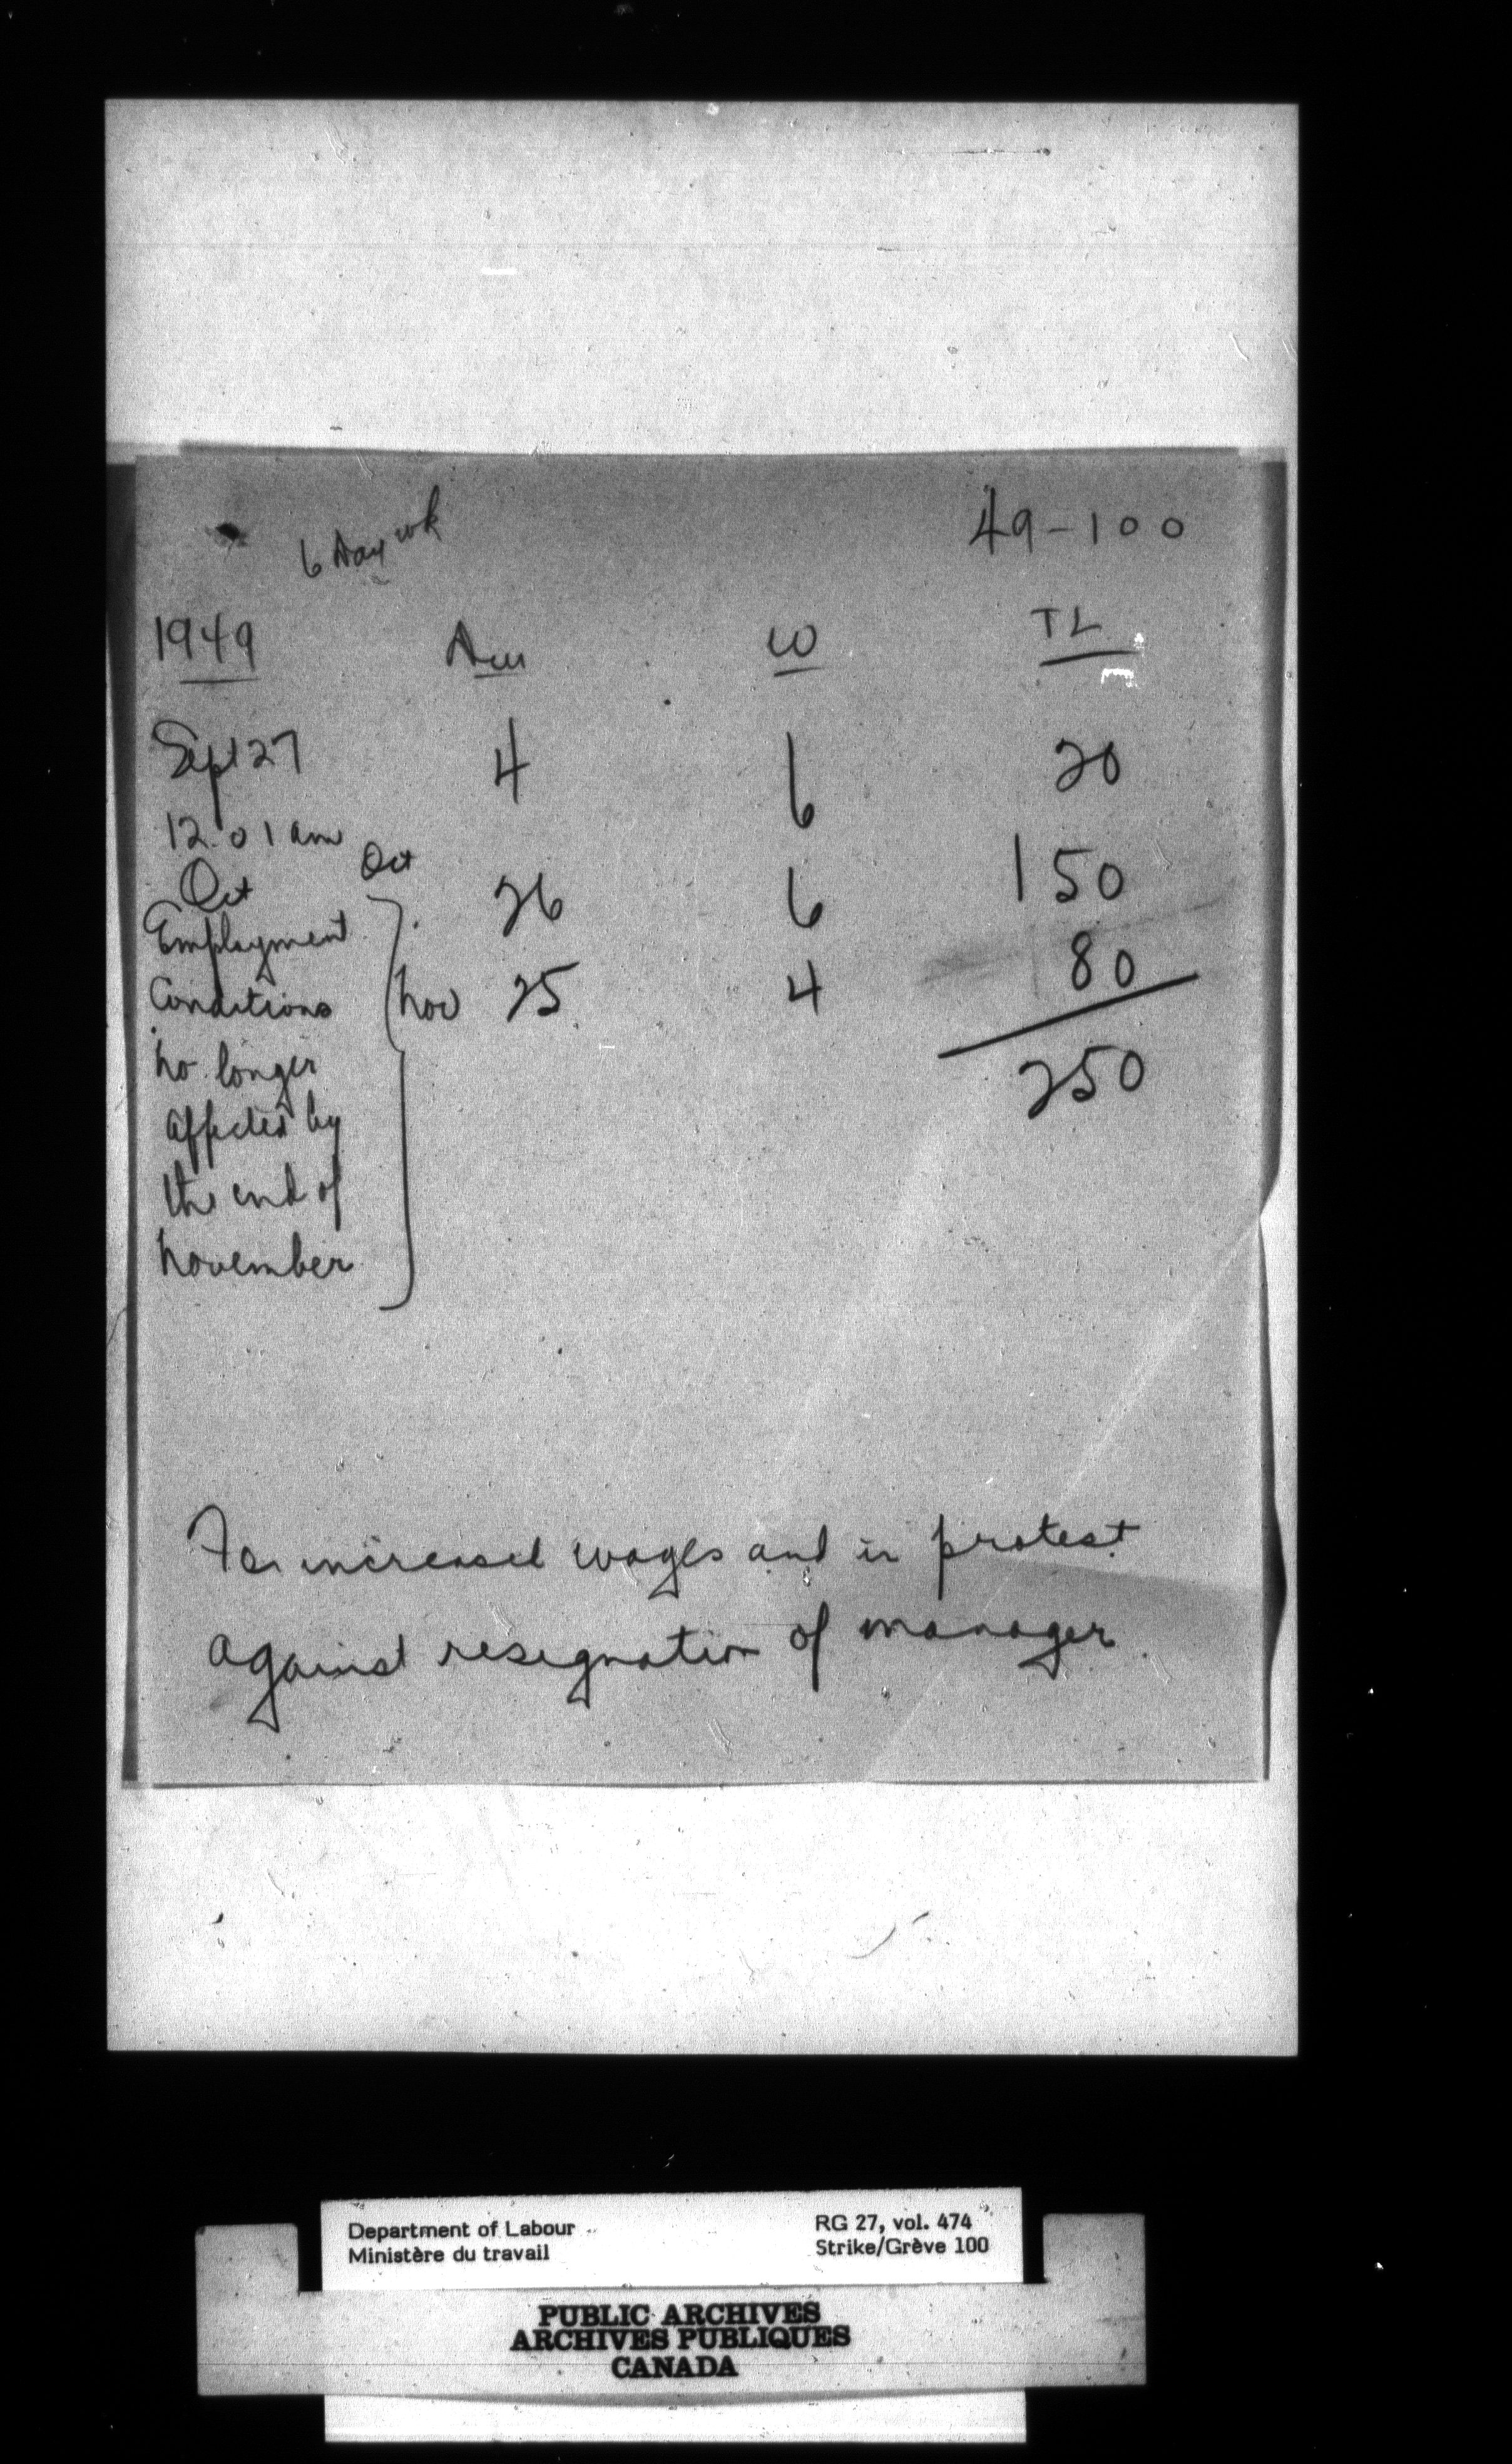 6 Day wk 49-100
1949 Dur W TL
Sept 27 4 6 20
12.01 am
Oct Oct 26 6 150
Employment
Conditions Nov 25 4 80
no longer 250
affected by
the end of
November
For increased wages and in protest
against resignation of manager
Department of Labour RG 27, vol. 474
Ministère du travail Strike/Grève 100
PUBLIC ARCHIVES
ARCHIVES PUBLIQUES
CANADA